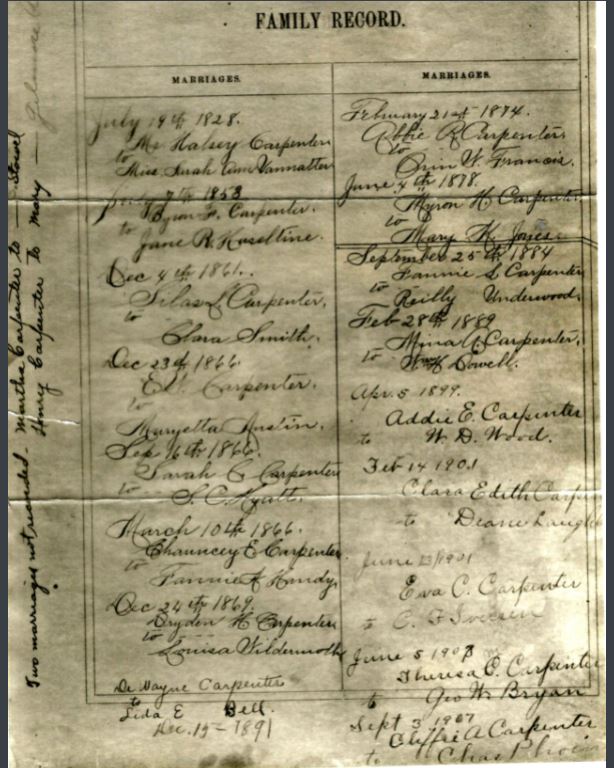 FAMILY RECORD.
MARRIAGES.
July 19th 1828.
Mr Halsey Carpenter
to
Miss Sarah Ann Vannatter
7th 1853
Byron F. Carpenter.
to
Jane R. Haseltine.
Dec 4th 1861.
Silas L Carpenter,
to
Clara Smith.
Dec 23d 1866.
Carpenter.
to
Maryetta Austin.
Sep 16th 1866.
Sarah C Carpenter
to
S. C. Hyatt.
March 10th 1866.
Chauncey E Carpenter
to
Fannie A Handy,
Dec 24th 1869.
Dryden H Carpenter
to
Louisa Wildermoth
De Wayne Carpenter
to
Lida E Bell.
Dec. 15 - 1891
MARRIAGES.
February 21st 1874.
Abbie R Carpenter,
to
Orin W. Francis.
June 4th 1878.
Myron H Carpenter
to
Mary K. Jones.
September 25th 1884
Fannie S Carpenter
to Reilly Underwood.
Feb 28th 1889
Mina A Carpenter.
to Dowell.
Apr. 5 1899.
Addie E. Carpenter
to W. D. Wood.
Feb 14 1901
Clara Edith Carp
to Deane Laugh
June 13/1901
Eva C. Carpenter
to C. F. Iversen
June 5 1907
Theresa O. Carpenter
to Geo W. Bryan
Sept 3 1907
Cliffie A Carpenter
to Chas
Two marriages not recorded - Martha Carpenter to — Stowel
Henry Carpenter to Mary —